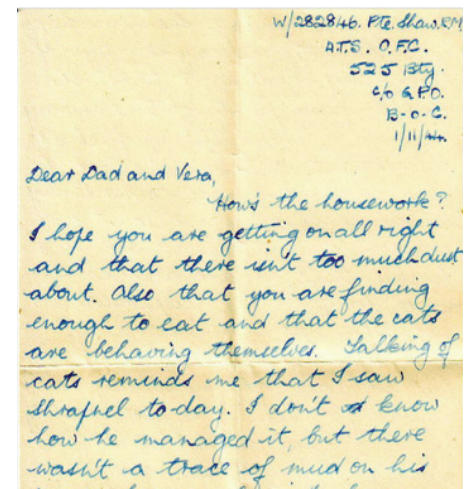 W/282846. Pte. Shaw. R.M.
A.T.S. O.F.C.
525 Bty.
C/o G.P.O.
B-O-C.
1/11/44.
Dear Dad and Vera,
How's the housework?
I hope you are getting on all right
and that there isn't too much dust
about. Also that you are finding
enough to eat and that the cats
are behaving themselves. Talking of
cats reminds me that I saw
Shrapnel to-day. I don't know
how he managed it, but there
wasn't a trace of mud on his